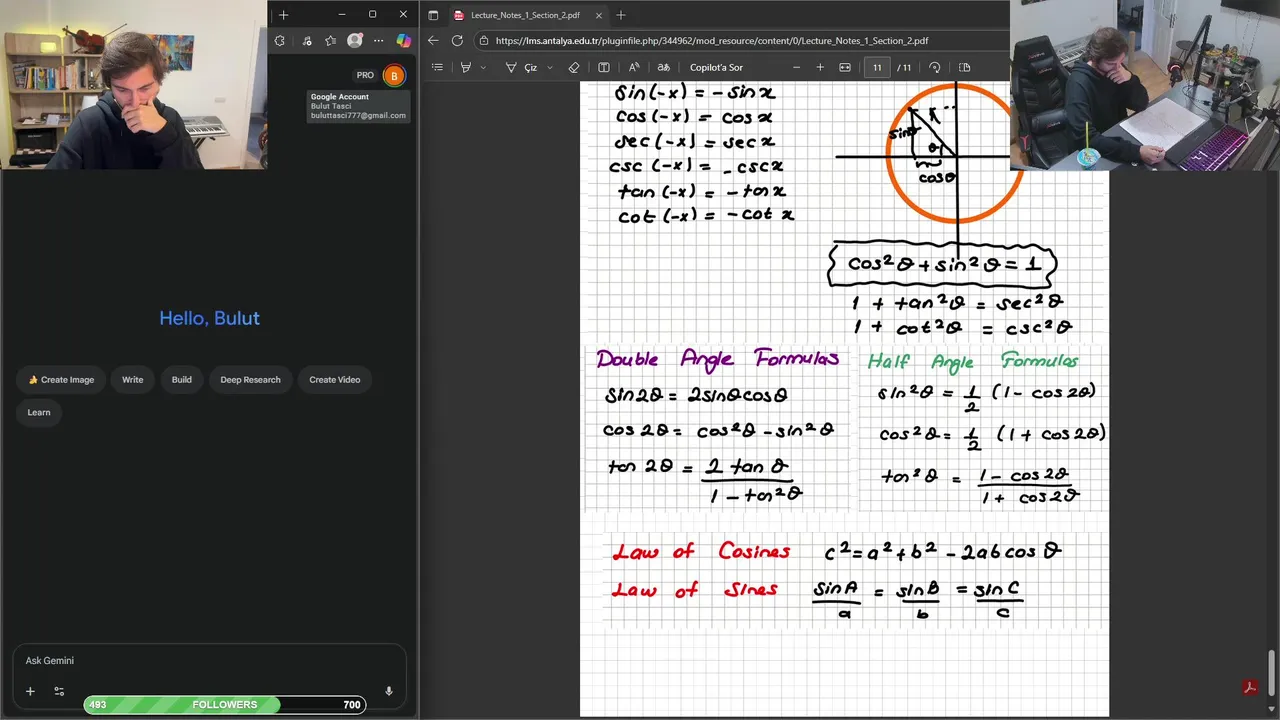 PRO
B
Google Account
Bulut Tasci
buluttasci777@gmail.com
Hello, Bulut
Create Image
Write
Build
Deep Research
Create Video
Learn
Ask Gemini
493 FOLLOWERS 700
Lecture_Notes_1_Section_2.pdf
https://lms.antalya.edu.tr/pluginfile.php/344962/mod_resource/content/0/Lecture_Notes_1_Section_2.pdf
Çiz
Copilot'a Sor
11 / 11
sin(-x) = -sinx
cos(-x) = cosx
sec(-x) = secx
csc(-x) = -cscx
tan(-x) = -tanx
cot(-x) = -cot x
sinθ
θ
cosθ
cos²θ + sin²θ = 1
1 + tan²θ = sec²θ
1 + cot²θ = csc²θ
Double Angle Formulas
sin2θ = 2sinθcosθ
cos2θ = cos²θ - sin²θ
tan 2θ = 2 tan θ / 1 - tan²θ
Half Angle Formulas
sin²θ = 1/2 (1 - cos2θ)
cos²θ = 1/2 (1 + cos2θ)
tan²θ = 1 - cos2θ / 1 + cos2θ
Law of Cosines c² = a² + b² - 2ab cos θ
Law of Sines sinA/a = sinB/b = sinC/c